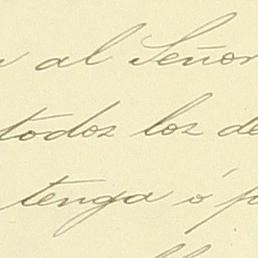 al Señor
todos los de
tenga ó p